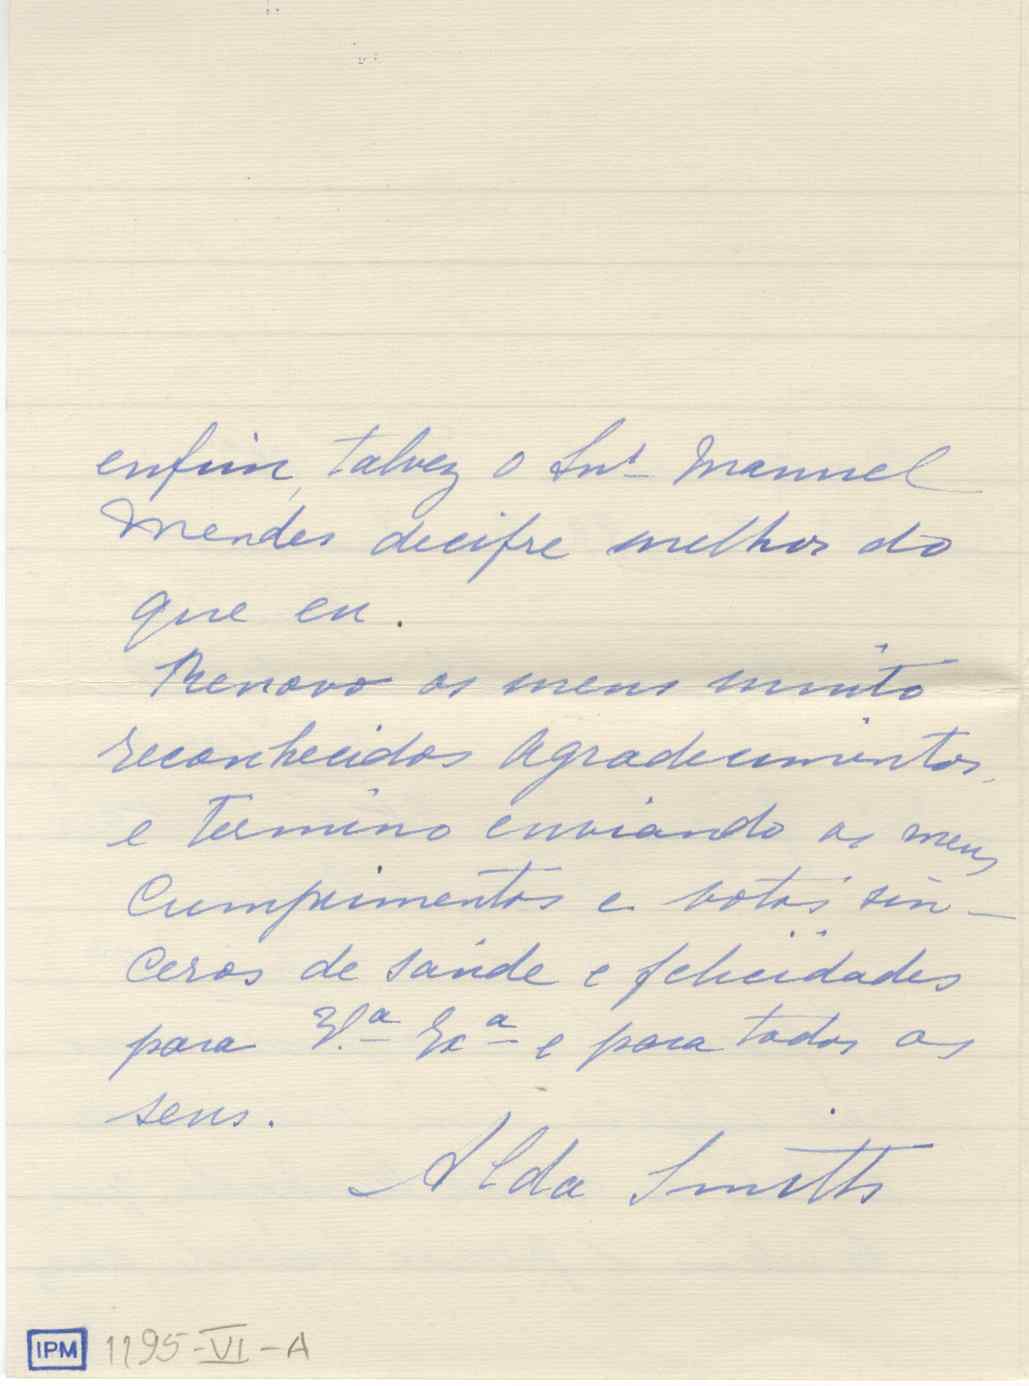 enfim, talvez o Snr. Manuel
Mendes decifre melhor do
que eu.
Renovo os meus muito
reconhecidos agradecimentos,
e termino enviando os meus
cumprimentos e votos sin-
ceros de saúde e felicidades
para V.ª Exª e para todos os
seus.
Alda Smith
IPM 1195-VI-A